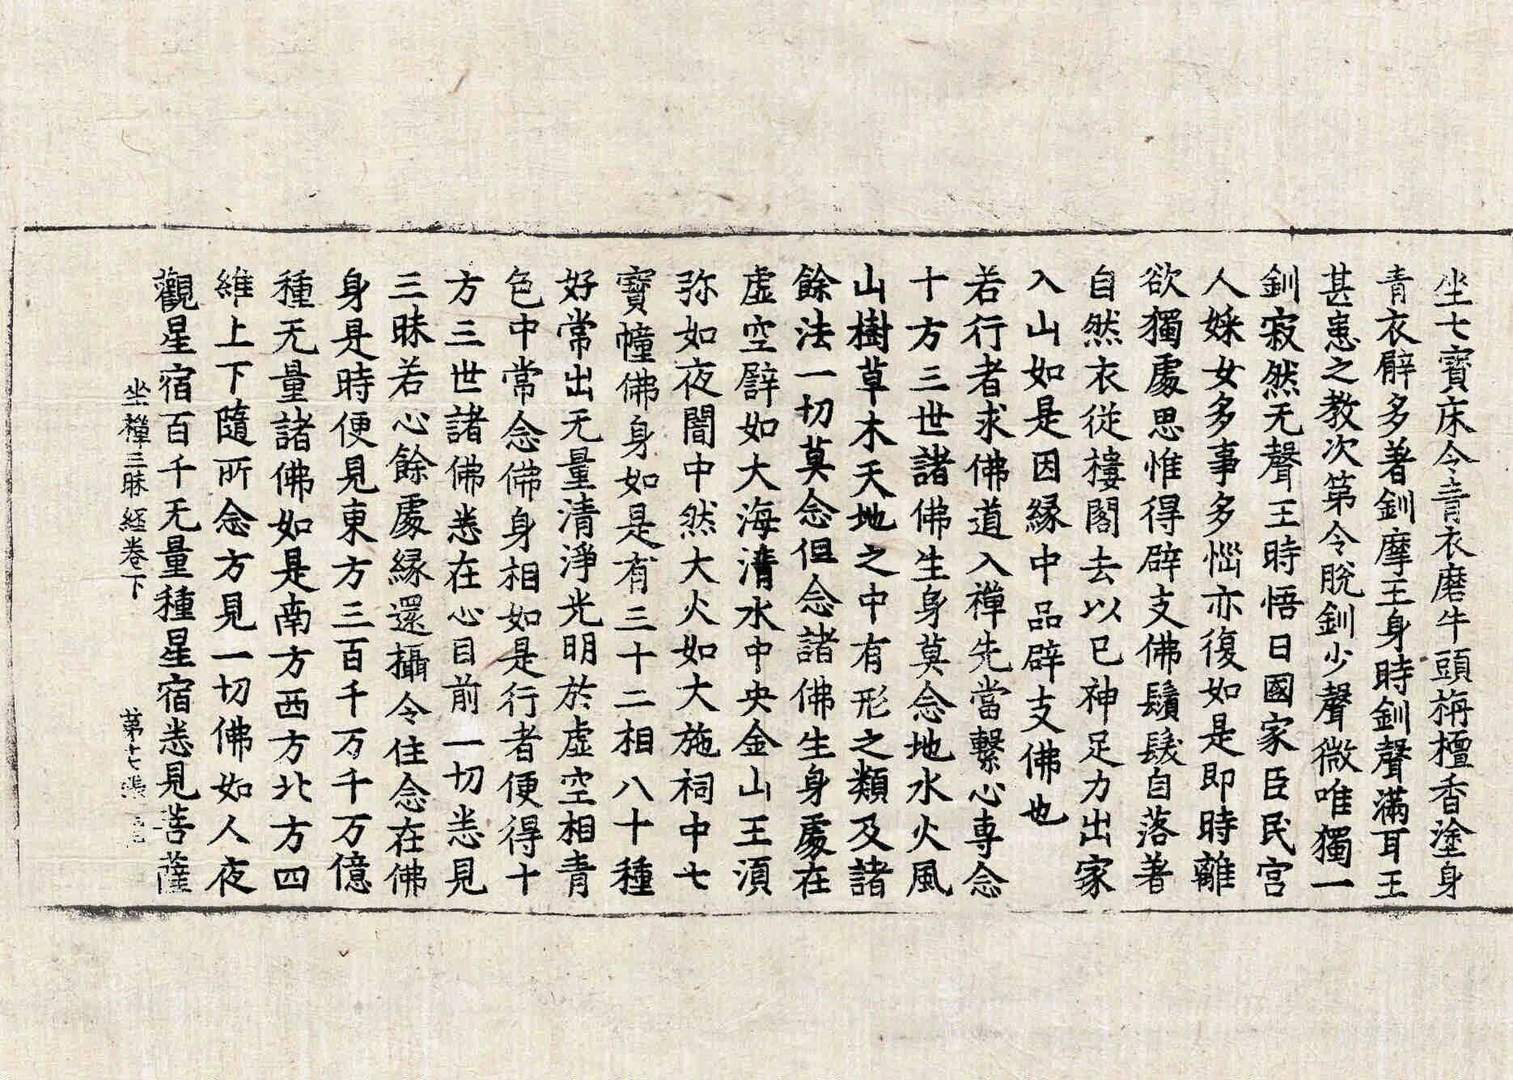 坐七寶床令青衣磨牛頭栴檀香塗身
青衣臂多著釧摩王身時釧聲滿耳王
甚患之教次第令脫釧少聲微唯獨一
釧寂然无聲王時悟曰國家臣民宮
人婇女多事多惱亦復如是即時離
欲獨處思惟得辟支佛鬚髮自落著
自然衣從樓閣去以已神足力出家
入山如是因緣中品辟支佛也
若行者求佛道入禪先當繫心專念
十方三世諸佛生身莫念地水火風
山樹草木天地之中有形之類及諸
餘法一切莫念但念諸佛生身處在
虛空譬如大海清水中央金山王湏
弥如夜闇中然大火如大施祠中七
寶幢佛身如是有三十二相八十種
好常出无量清淨光明於虛空相青
色中常念佛身相如是行者便得十
方三世諸佛悉在心目前一切悉見
三昧若心餘處緣還攝令住念在佛
身是時便見東方三百千万千万億
種无量諸佛如是南方西方北方四
維上下隨所念方見一切佛如人夜
觀星宿百千无量種星宿悉見菩薩
坐禪三昧經卷下 第廿七張